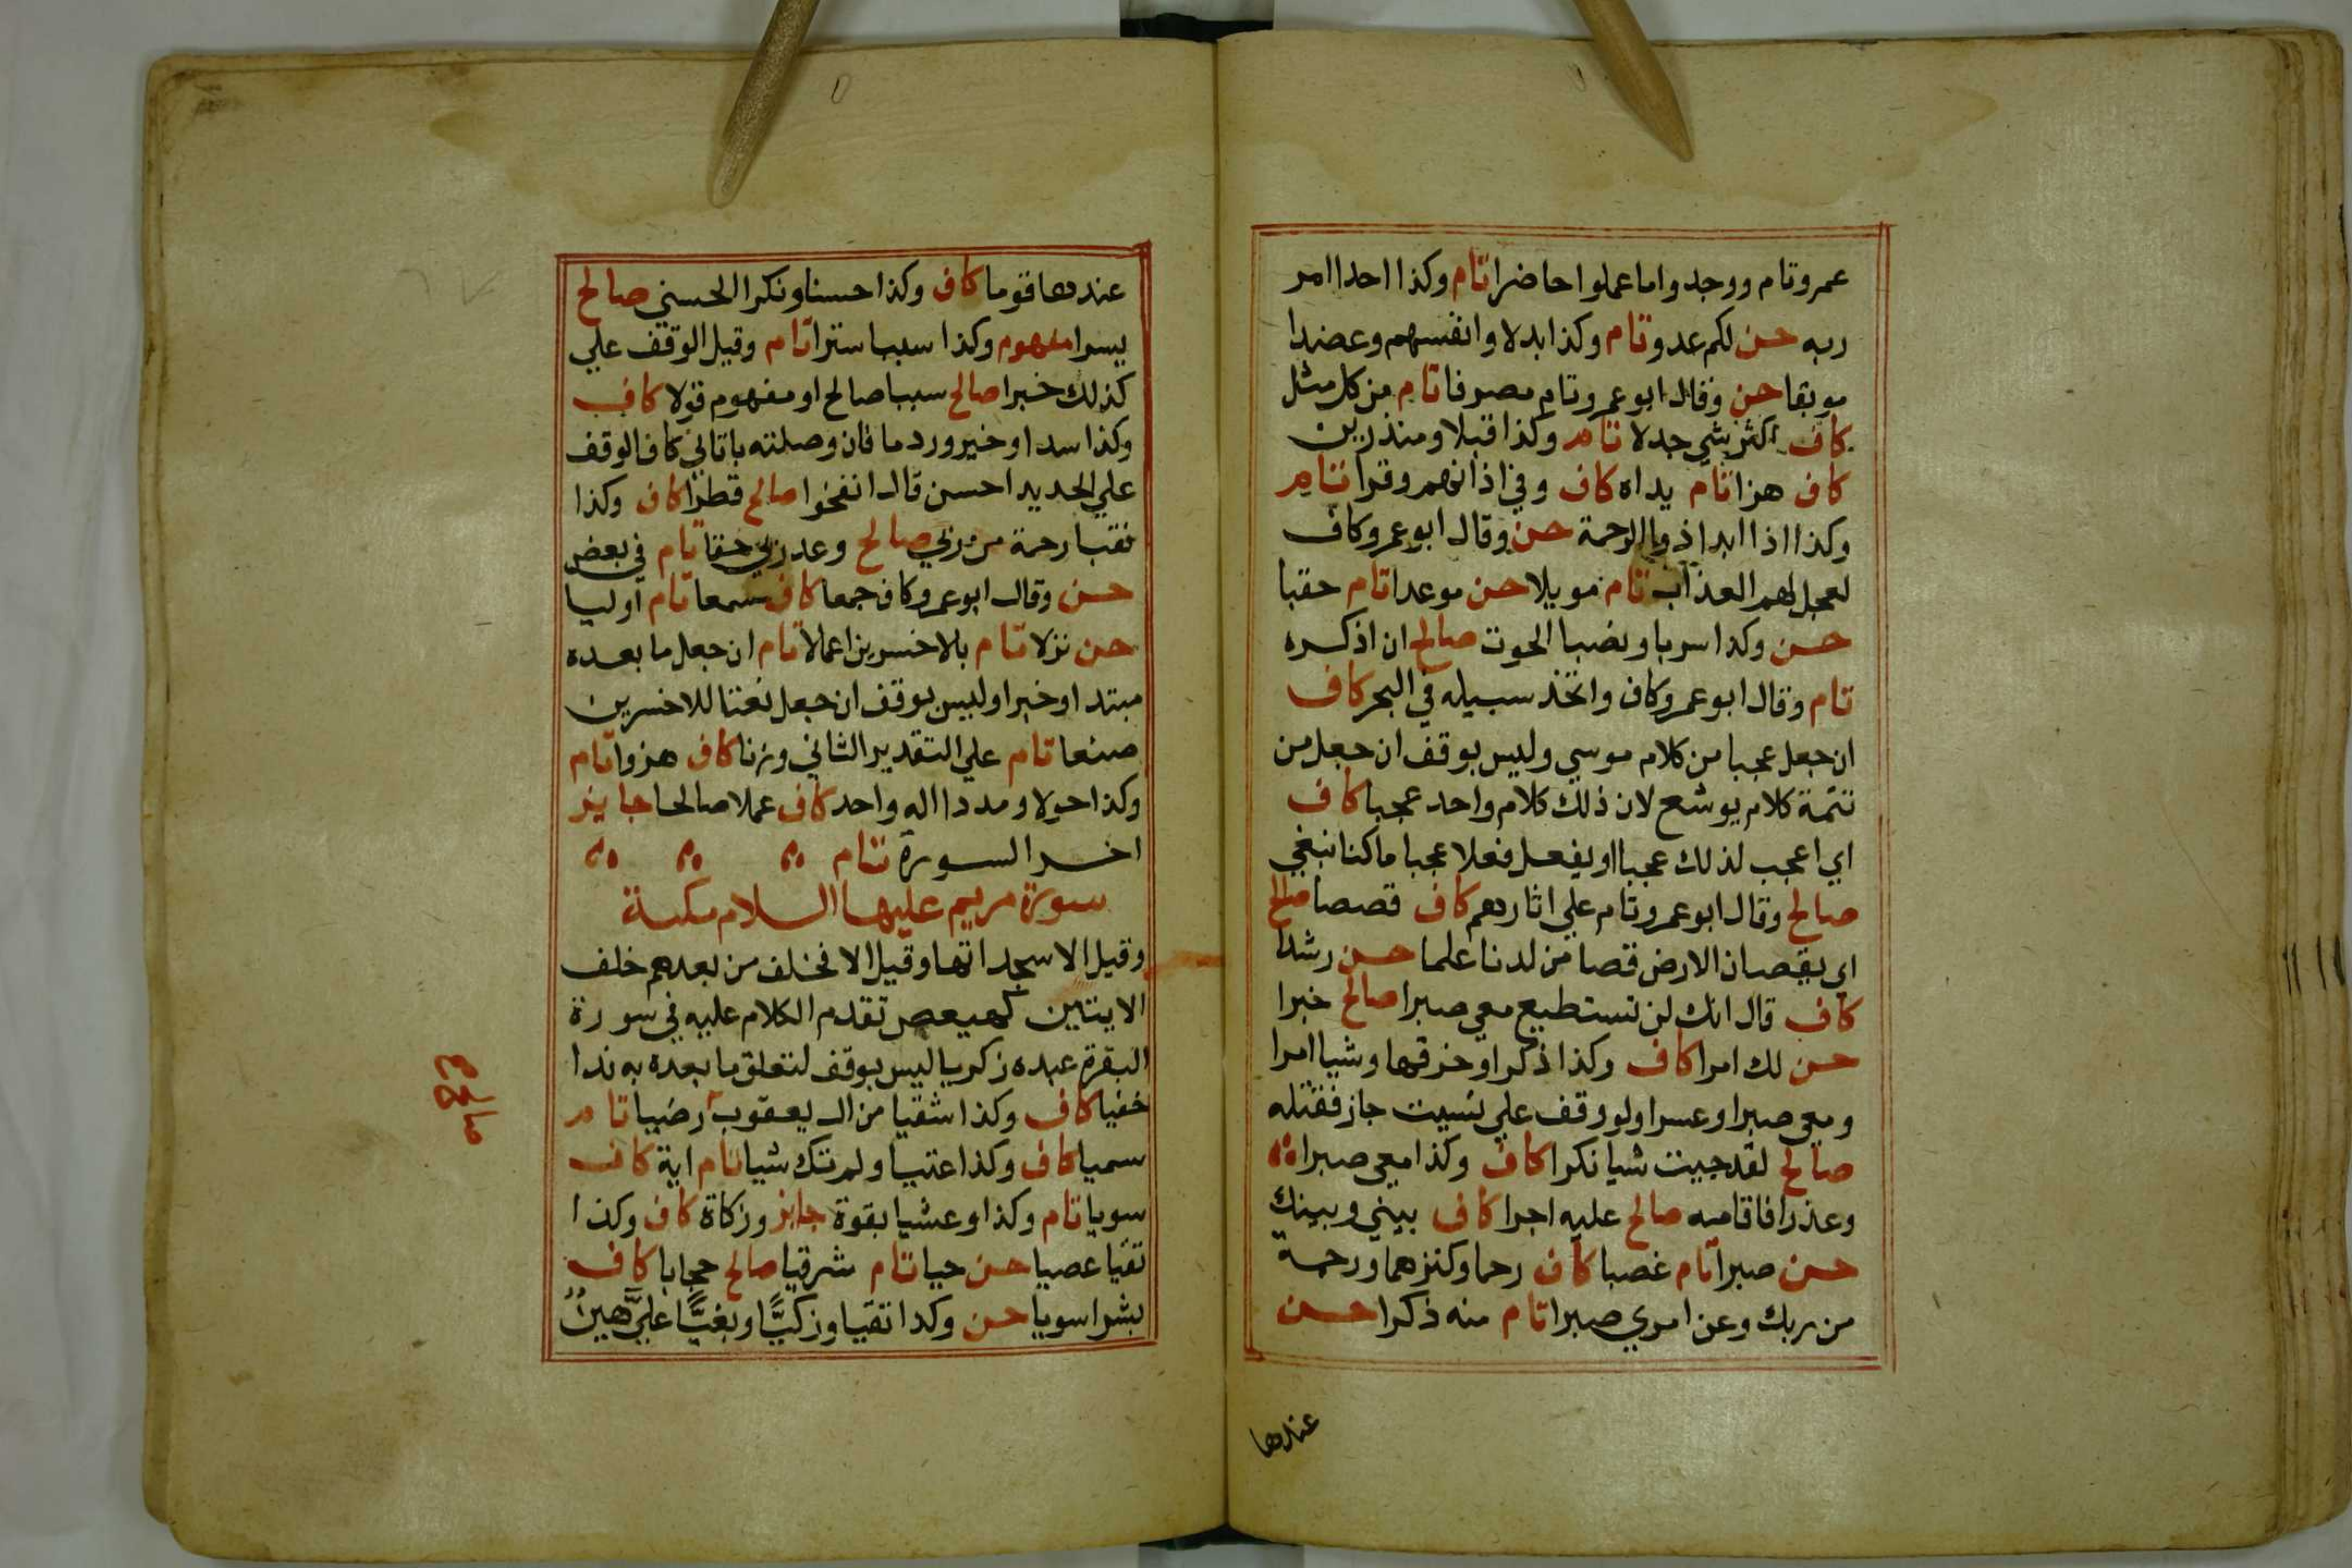 عمرو تام ووجدوا ما عملوا حاضرا تام وكذا احدا امر
ربه حسن لكم عدو تام وكذا بدلا وانفسهم وعضدا
موبقا حسن وقال ابو عمرو تام مصرفا تام من كل مثل
كاف اكثر شي جدلا تام وكذا قبلا ومنذرين
كاف هزا تام يداه كاف وفي اذانهم وقرا تام
وكذا اذا ابدا ذو الرحمة حسن وقال ابو عمرو كاف
لعجل لهم العذاب تام مويلا حسن موعدا تام حقبا
حسن وكذا سربا ونصبا الحوت صالح ان اذكره
تام وقال ابو عمرو كاف واتخذ سبيله في البحر كاف
ان جعل عجبا من كلام موسي وليس بوقف ان جعل من
تتمة كلام يوشع لان ذلك كلام واحد عجبا كاف
اي اعجب لذلك عجبا او يفعل فعلا عجبا ما كنا نبغي
صالح وقال ابو عمرو تام علي اثارهم كاف قصصا صالح
اي يقصان الارض قصا من لدنا علما حسن رشدا
كاف قال انك لن تستطيع معي صبرا صالح خبرا
حسن لك امرا كاف وكذا ذكرا وخرقها وشيا امرا
ومعي صبرا وعسرا ولو وقف علي نسيت جاز فقتله
صالح لقد جيت شيا نكرا كاف وكذا معي صبرا
وعذرا فاقامه صالح عليه اجرا كاف بيني وبينك
حسن صبرا تام غصبا كاف رحما وكنزهما ورحمة
من ربك وعن امري صبرا تام منه ذكرا حسن
عندها
عندها قوما كاف وكذا حسنا ونكرا الحسني صالح
يسرا مفهوم وكذا سببا سترا تام وقيل الوقف علي
كذلك خبرا صالح سببا صالح او مفهوم قولا كاف
وكذا سدا وخير وردما فان وصلته باتاني كاف الوقف
علي الحديد احسن قال انفخوا صالح قطرا كاف وكذا
نقبا رحمة من ربي صالح وعد ربي حقا تام في بعض
حسن وقال ابو عمرو كاف جمعا كاف سمعا تام اوليا
حسن نزلا تام بالاخسرين اعمالا تام ان جعل ما بعده
مبتدا وخبرا وليس بوقف ان جعل نعتا للاخسرين
صنعا تام علي التقدير الثاني وزنا كاف هزوا تام
وكذا حولا ومددا اله واحد كاف عملا صالحا جايز
اخر السورة تام
سورة مريم عليها السلام مكية
وقيل الا سجداتها وقيل الا فخلف من بعدهم خلف
الايتين كهيعص تقدم الكلام عليه في سورة
البقرة عبده زكريا ليس بوقف لتعلق ما بعده به ندا
خفيا كاف وكذا شقيا من ال يعقوب رضيا تام
سميا كاف وكذا عتيا ولم تك شيا تام اية كاف
سويا تام وكذا وعشيا بقوة جايز وزكاة كاف وكذا
تقيا عصيا حسن حيا تام شرقيا صالح حجابا كاف
بشرا سويا حسن وكذا تقيا وزكيًّا وبغيًّا عليَّ هينٌ
صالح